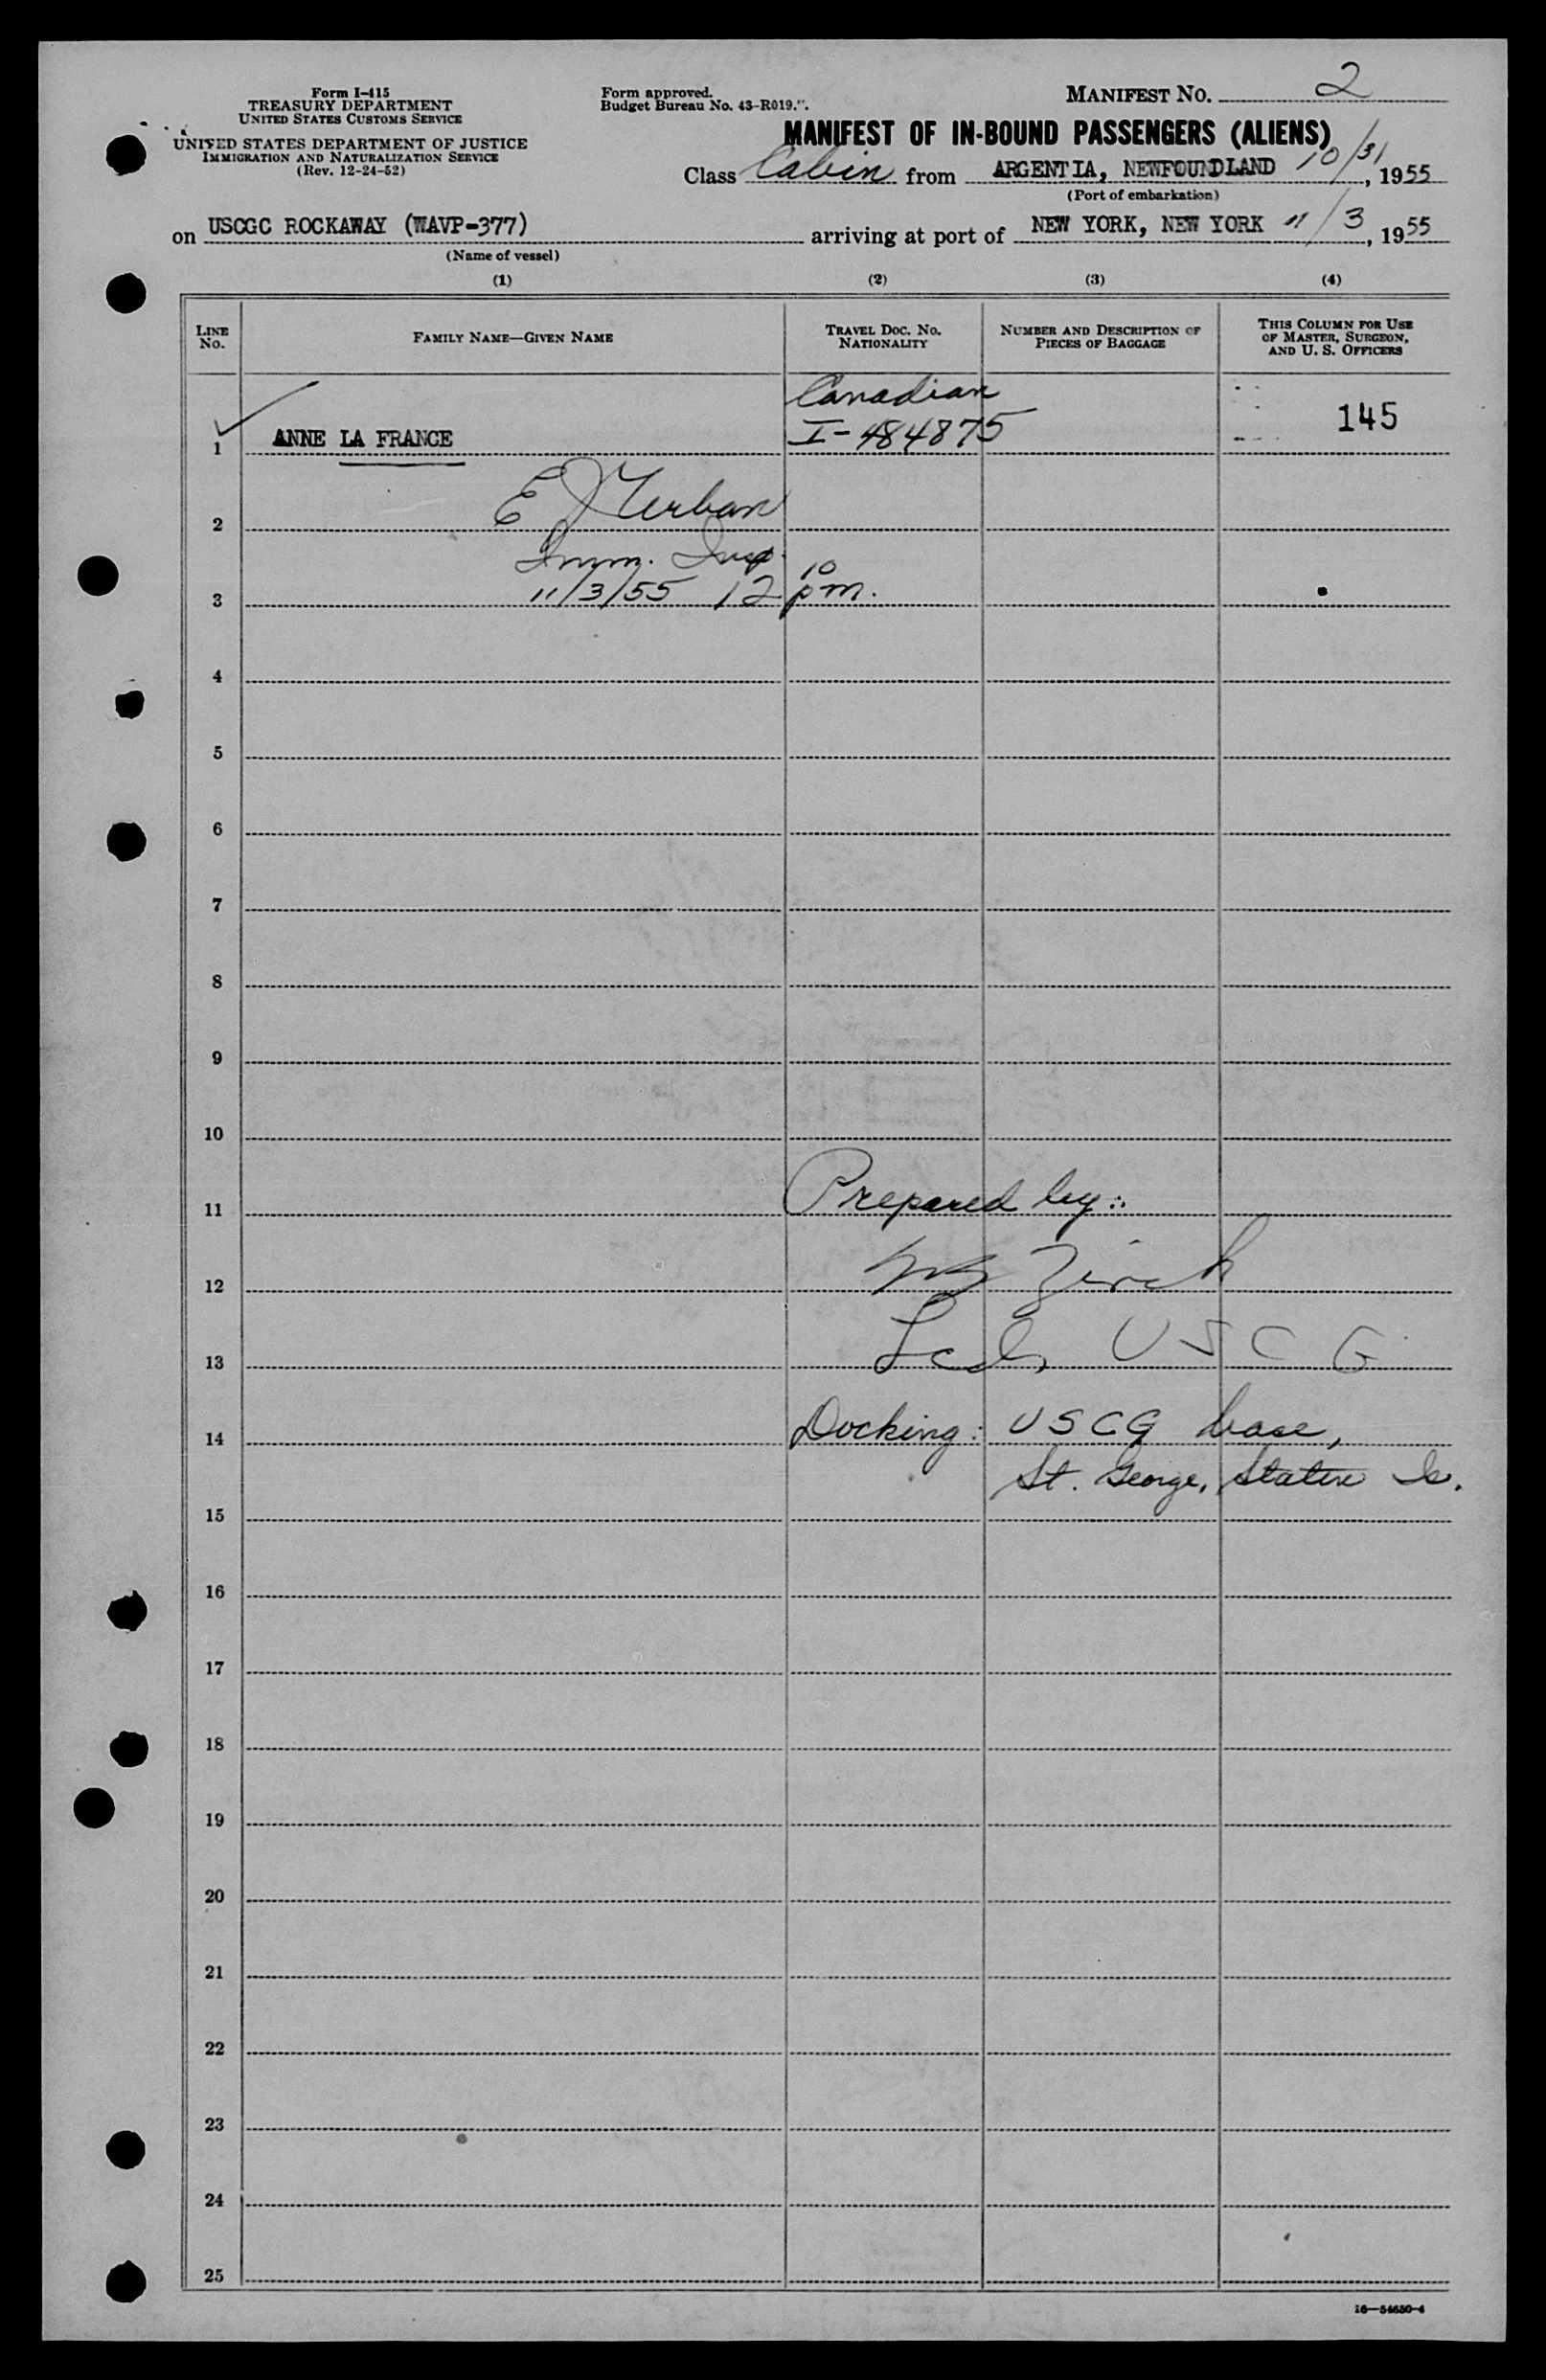 Form I-415
TREASURY DEPARTMENT
UNITED STATES CUSTOMS SERVICE
UNITED STATES DEPARTMENT OF JUSTICE
IMMIGRATION AND NATURALIZATION SERVICE
(Rev. 12-24-52)
Form approved.
Budget Bureau No. 43-R019.
MANIFEST No. 2
MANIFEST OF IN-BOUND PASSENGERS (ALIENS)
Class Cabin from ARGENTIA, NEWFOUNDLAND 10/31, 1955
(Port of embarkation)
on USCGC ROCKAWAY (WAVP-377) arriving at port of NEW YORK, NEW YORK 11/3, 1955
(Name of vessel)
(1) (2) (3) (4)
LINE No.
FAMILY NAME—GIVEN NAME
TRAVEL DOC. NO. NATIONALITY
NUMBER AND DESCRIPTION OF PIECES OF BAGGAGE
THIS COLUMN FOR USE OF MASTER, SURGEON, AND U. S. OFFICERS
Canadian
1 ANNE LA FRANCE I-484875 145
2 E
Imm. Insp.
3 11/3/55 12 10 pm.
4
5
6
7
8
9
10
11 Prepared by:
12
13 USCG
14 Docking: USCG base,
St. George, Staten Is.
15
16
17
18
19
20
21
22
23
24
25
16—54650-4